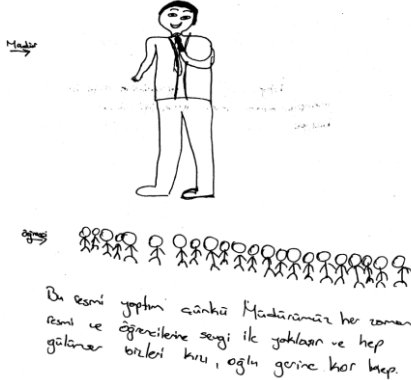 Müdür
öğrenci
Bu resmi yaptım çünkü Müdürümüz her zaman
resmi ve öğrencilerine sevgi ile yaklaşır ve hep
gülümser bizleri kızı, oğlu yerine kor hep.